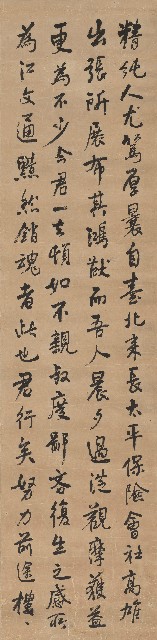 精純人尤篤厚曩自臺北來長太平保險會社高雄
出張所展布其鴻猷而吾人晨夕過從觀摩獲益
更為不少今君一去頓如不親叔度鄙吝復生之感所
為江文通黯然銷魂者此也君行矣努力前途樸、